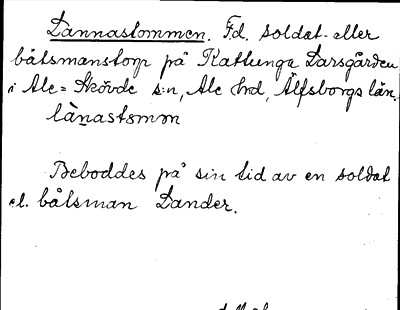 Lannastommen. Fd. soldat- eller
båtsmanstorp på Kattunga Larsgården
i Ale-Skövde s:n, Ale hrd, Älfsborgs län.
Beboddes på sin tid av en soldat
el. båtsman Lander.